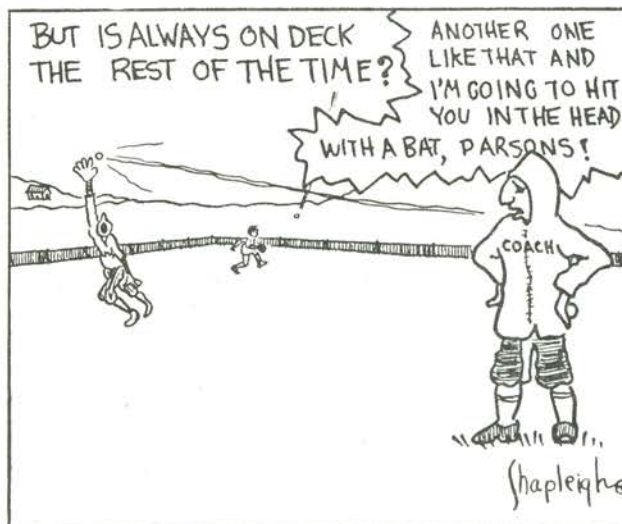 BUT IS ALWAYS ON DECK
THE REST OF THE TIME?
ANOTHER ONE
LIKE THAT AND
I'M GOING TO HIT
YOU IN THE HEAD
WITH A BAT, PARSONS!
COACH
Shapleigh